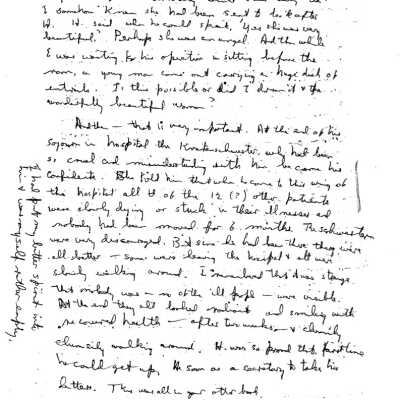 I somehow knew she had been sent to look after
H. H. said when he could speak, "Yes she was very
beautiful." Perhaps she was an angel. And the while
I was waiting for his operation & sitting before the
room, a young man came out carrying a huge dish of
entrails. Is this possible or did I dream it & the
wonderfully beautiful woman?
Another — that is very important. At the end of his
sojourn in hospital the Krankenschwester, who had been
so cruel and misunderstanding with him became his
confidante. She told him that when he came to this wing of
the hospital all of the 12 (?) other patients
were slowly dying or stuck in their illnesses and
nobody had been moved for 6 months. The Schwestern
were very discouraged. But soon he had been there they were
all better — some were leaving the hospital & all were
slowly walking around. I remembered that at one stage
that nobody was — of the ill people — were visible.
At the end they all looked radiant and smiling with
recovered health — after two weeks — & clumsily
clumsily walking around. H. was so proud that
he could get up. H. soon as a secretary to take his
letters. This was all in your other book.
I had put my better spirit into
him & was myself rather empty.